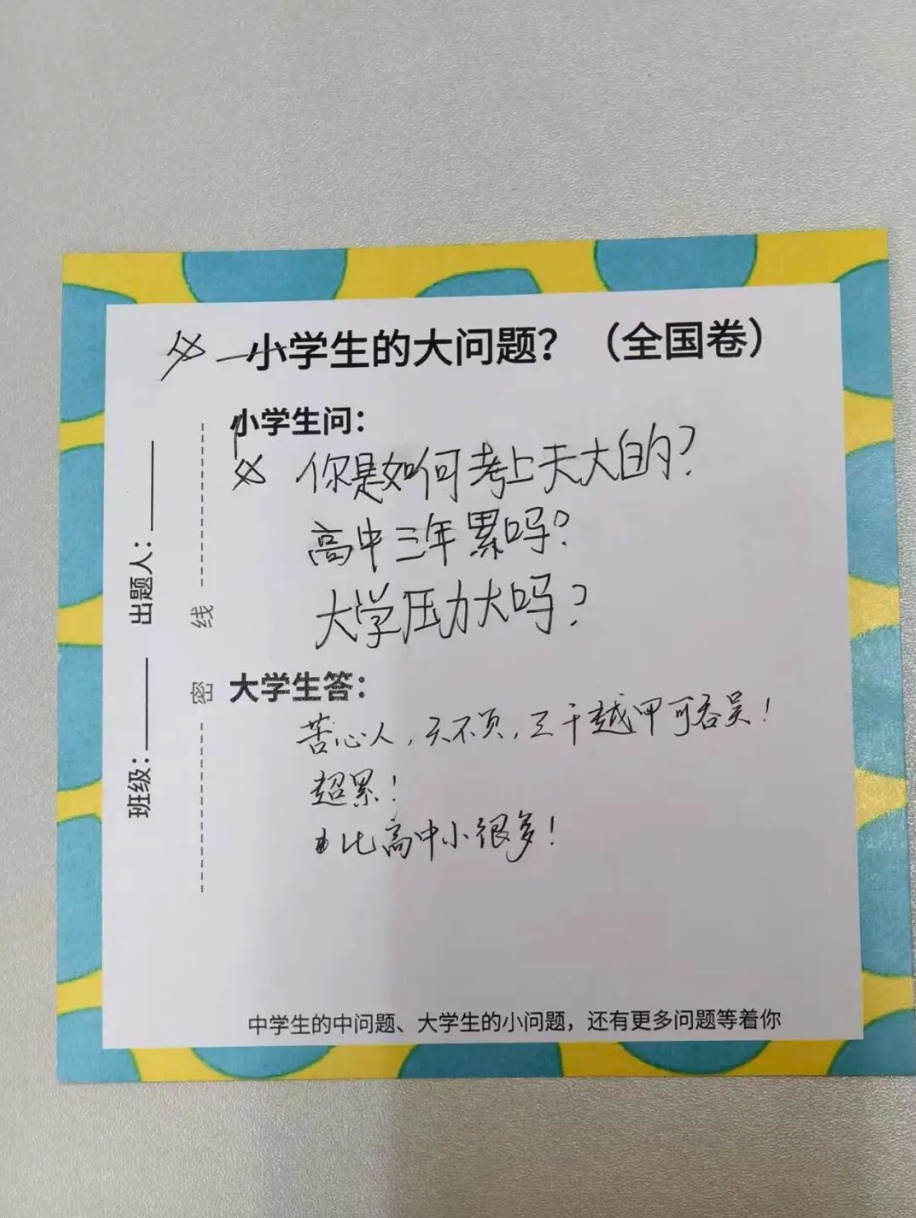 小学生的大问题？（全国卷）
小学生问：
你是如何考上天大的？
高中三年累吗？
大学压力大吗？
大学生答：
苦心人，天不负，三千越甲可吞吴！
超累！
比高中小很多！
中学生的中问题、大学生的小问题，还有更多问题等着你
班级：______ 出题人：______
密 线